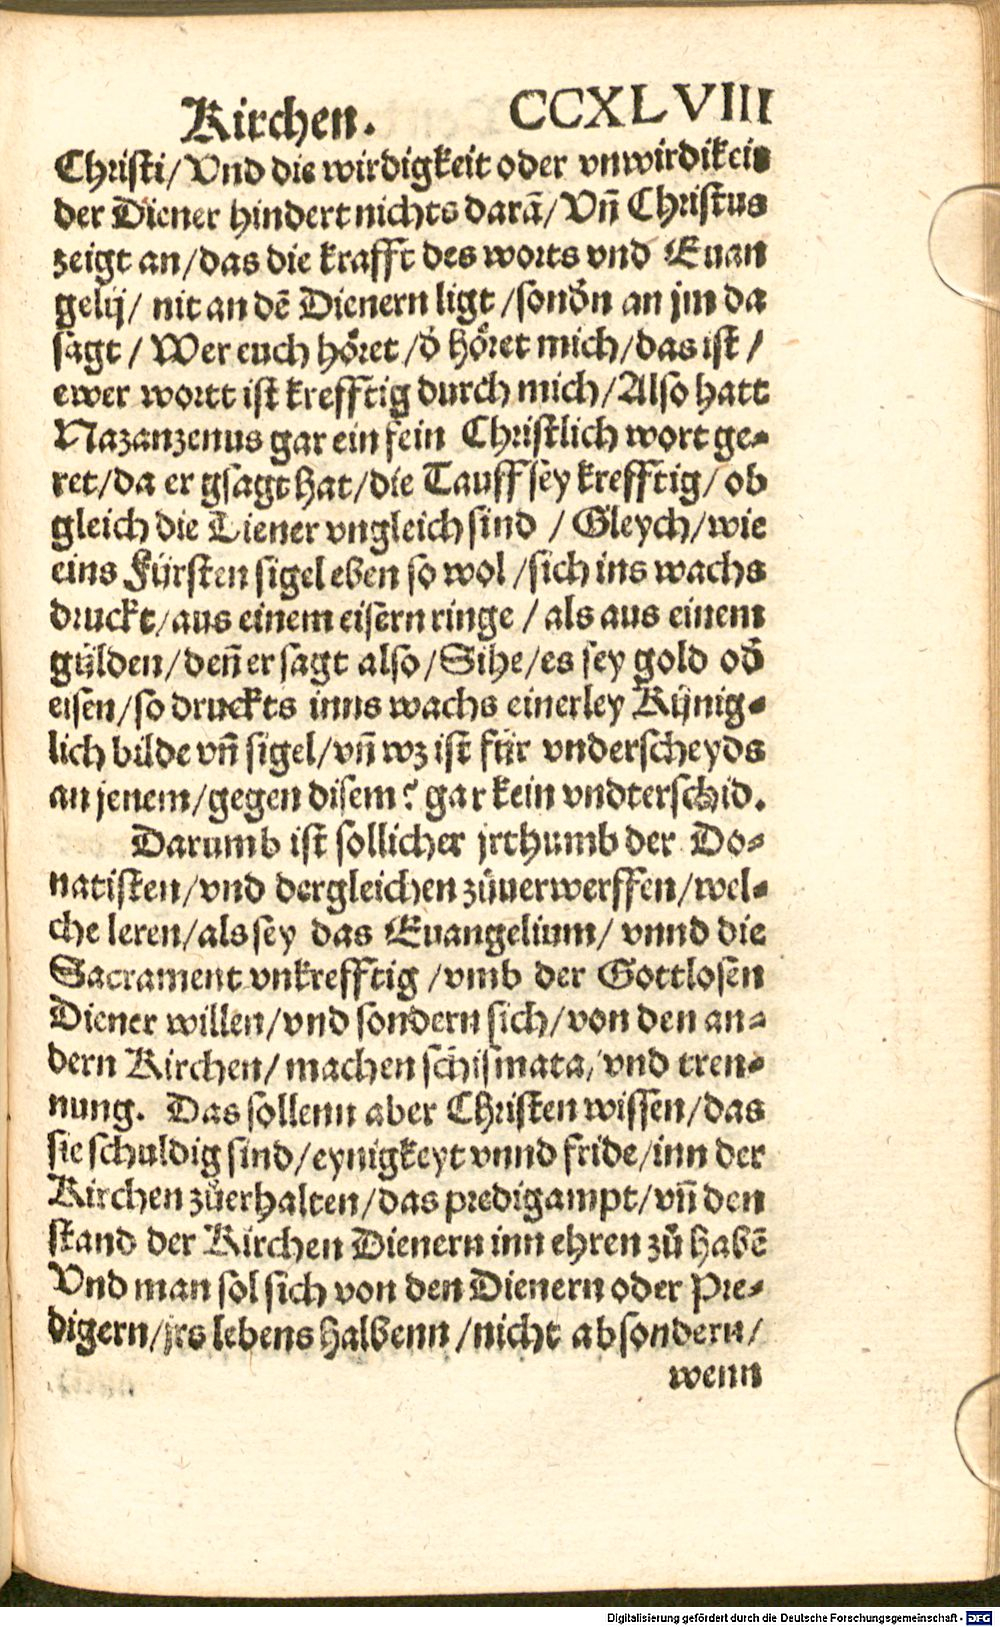 Kirchen. CCXLVIII
Christi/ Vnd die wirdigkeit oder vnwirdikeit
der Diener hindert nichts darã/ Vñ Christus
zeigt an/das die krafft des worts vnd Euan
gelij/ nit an dẽ Dienern ligt /sonďn an jm da
sagt / Wer euch hoͤret /ď hoͤret mich/das ist /
ewer wortt ist krefftig durch mich/Also hatt
Nazanzenus gar ein fein Christlich wort ge-
ret/da er gsagt hat/die Tauff sey krefftig/ ob
gleich die Diener vngleich sind / Gleych/wie
eins Fürsten sigel eben so wol /sich ins wachs
druckt/aus einem eisern ringe / als aus einem
gülden/deñ er sagt also/Sihe/es sey gold oď
eisen/so druckts inns wachs einerley Künig-
lich bilde vñ sigel/vñ wz ist für vnderscheyds
an jenem/gegen disem? gar kein vndterschid.
Darumb ist sollicher jrthumb der Do-
natisten/vnd dergleichen zůuerwerffen/wel-
che leren/als sey das Euangelium/ vnnd die
Sacrament vnkrefftig /vmb der Gottlosen
Diener willen/vnd sondern sich/von den an-
dern Kirchen/ machen schismata/vnd tren-
nung. Das sollenn aber Christen wissen/das
sie schuldig sind/eynigkeyt vnnd fride/inn der
Kirchen zůerhalten/das predigampt/vñ den
stand der Kirchen Dienern inn ehren zů habẽ
Vnd man sol sich von den Dienern oder Pre-
digern/jrs lebens halbenn /nicht absondern/
wenn
Digitalisierung gefördert durch die Deutsche Forschungsgemeinschaft - DFG